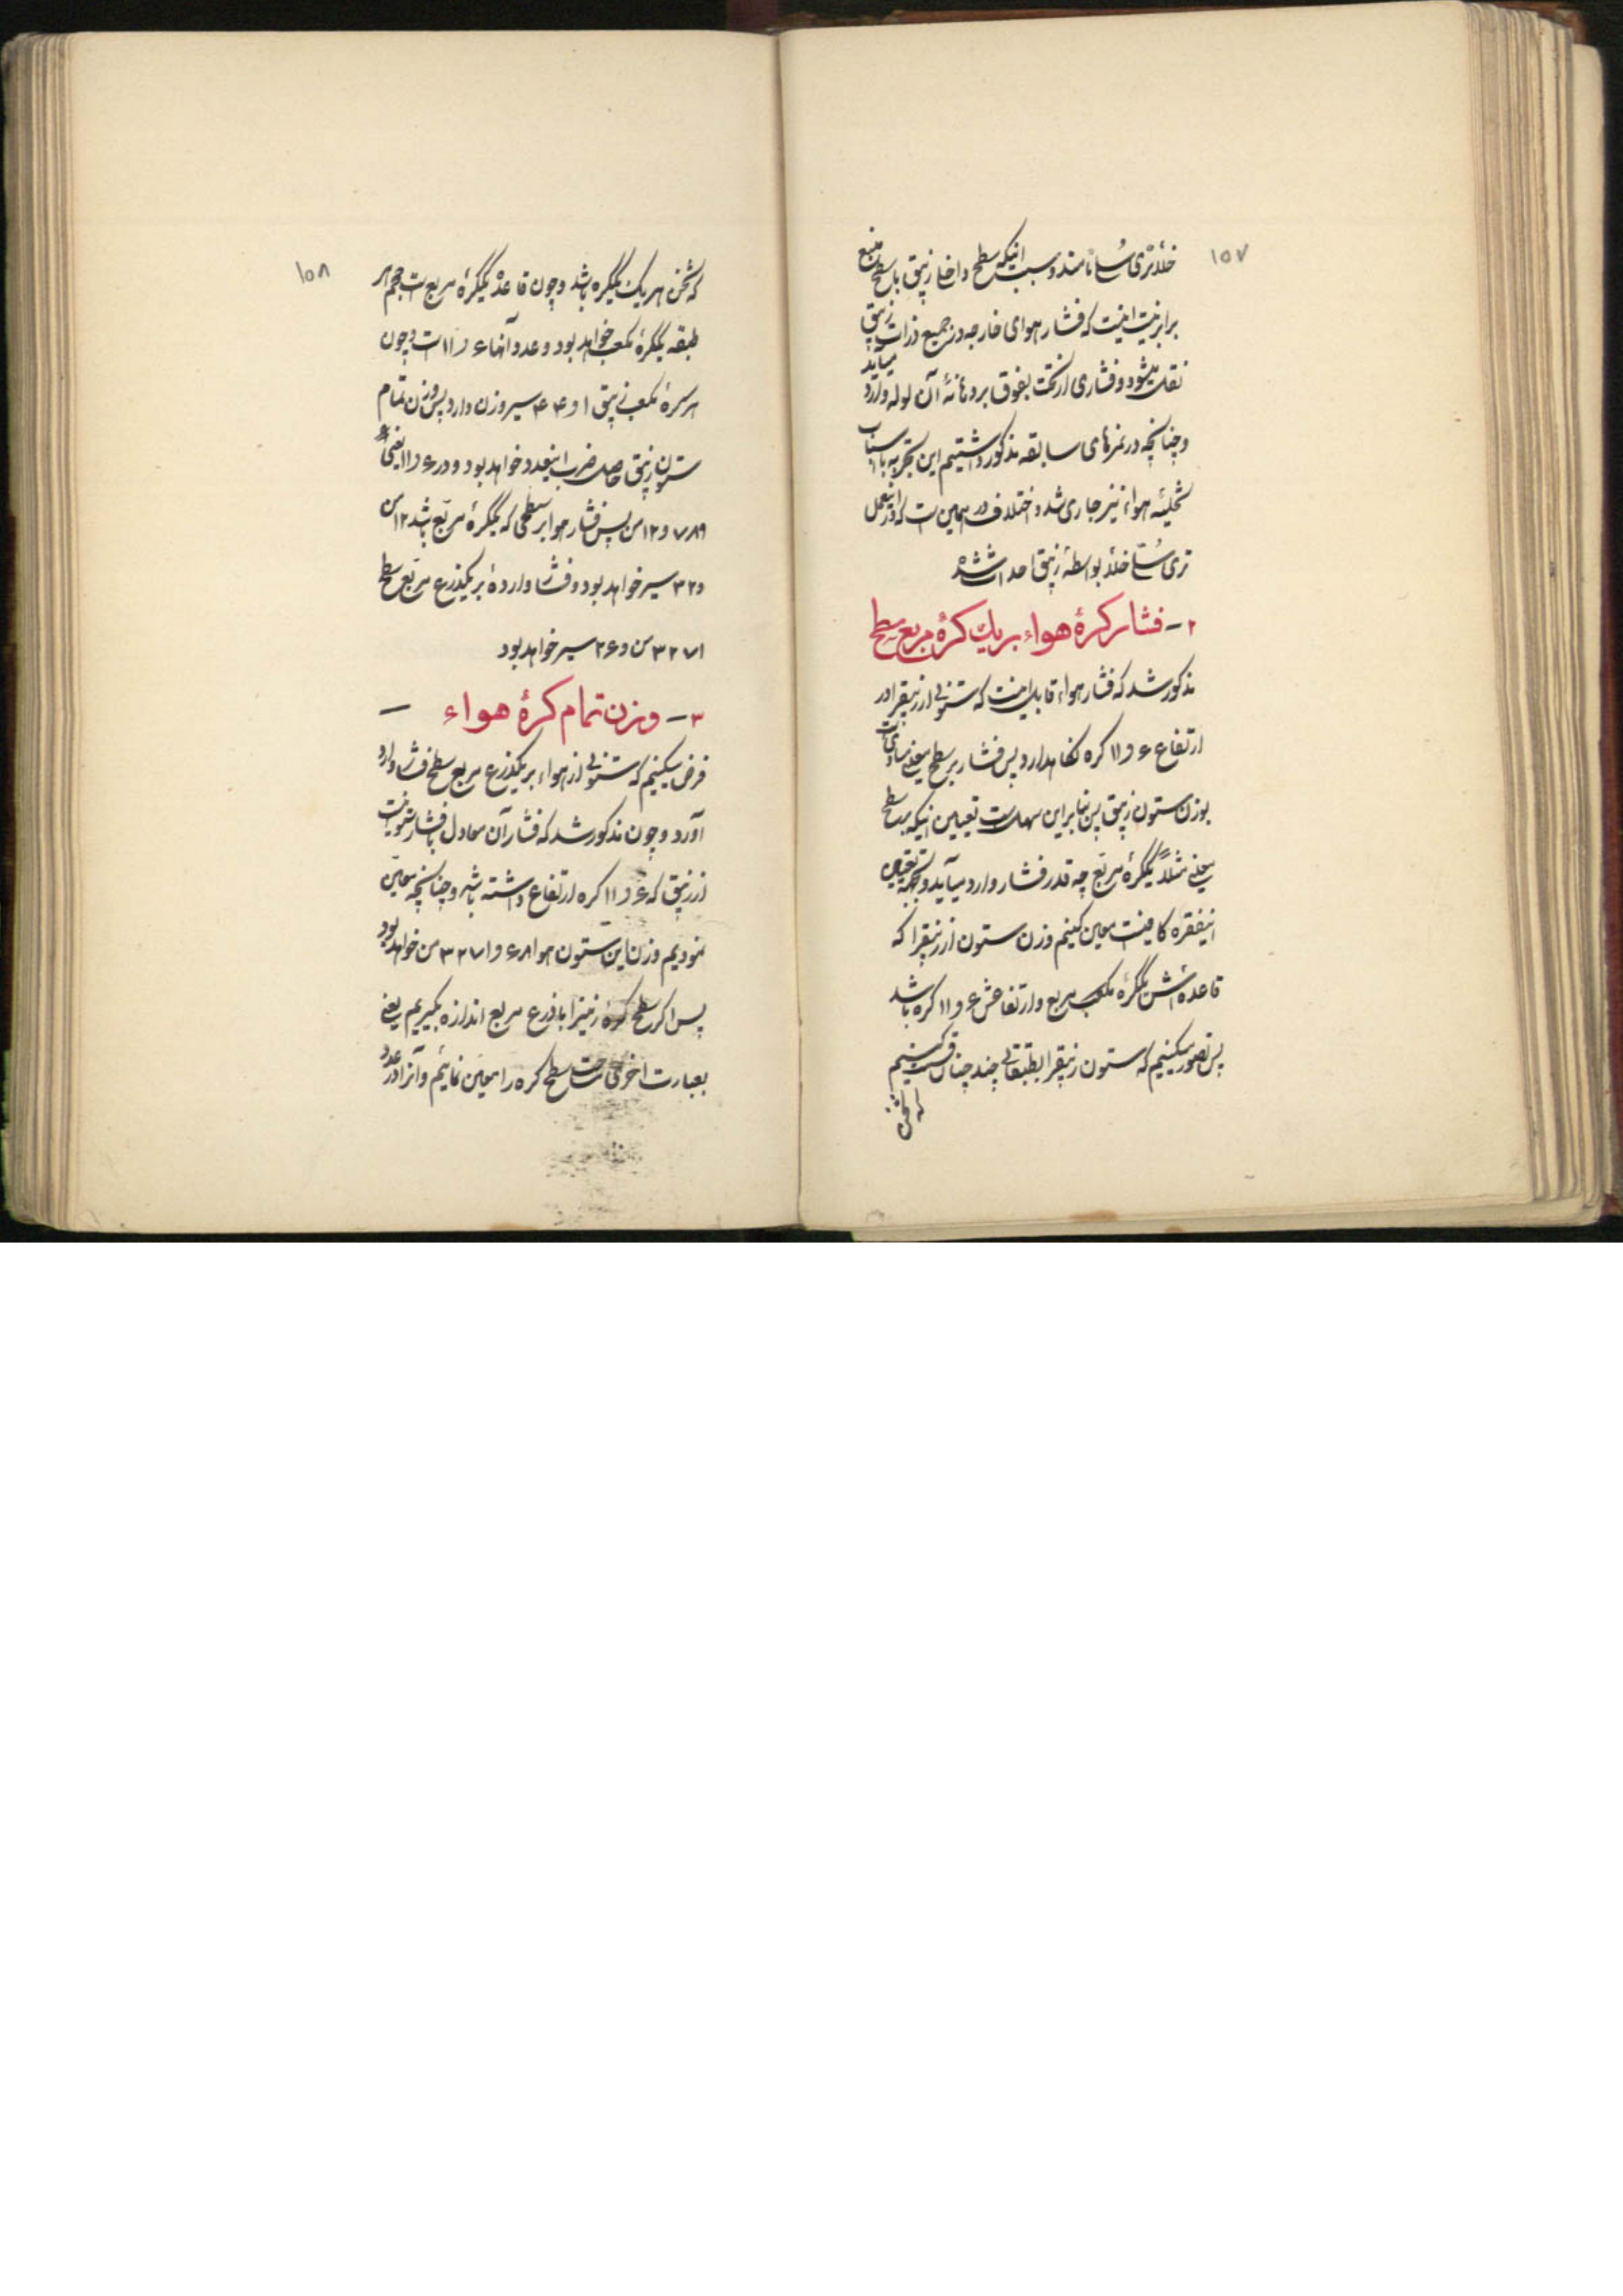 ۱۵۷
خلأ تری سُلّی نامند و سبب اینکه سطح داخل زیبق با سطح منبع
برابر نیست اینست که فشار هوای خارجه در جمیع ذرات زیبق
نقل میشود و فشاری از تحت بفوق بر دهانهٔ آن لوله وارد میآید
و چنانچه در نمرهای سابقه مذکور داشتیم این تجربه با اسباب
تخلیهٔ هواء نیز جاری شد و اختلاف در همین است که در اینعمل
تری سُلّی خلأ بواسطهٔ زیبق احداث شده
۲ – فشار کرهٔ هواء بر یک کرهٔ مربع سطح
مذکور شد که فشار هواء قابل اینست که ستونی از زیبق را در
ارتفاع ۶ و ۱۱ کره نگاهدارد پس فشار بر سطح معینی مساوی است
بوزن ستون زیبق پس بنابراین سهلست تعیین اینکه بر سطح
معینی مثلاً یکگرهٔ مربع چه قدر فشار وارد میآید و بجهة تعیین
اینفقره کافیست معین کنیم وزن ستون از زیبق را که
قاعده اش یکگره مربع و ارتفاعش ۶ و ۱۱ کره باشد
پس تصور میکنیم که ستون زیبق را بطبقاتی چند چنان قسمت کنیم
که ثخن
۱۵۸
که ثخن هر یک یکگره باشد و چون قاعدهٔ یکگرهٔ مربع است حجم هر
طبقه یکگرهٔ مکعب خواهد بود و عدد آنها ۶ و ۱۱ است و چون
هر گرهٔ مکعب زیبق ۱ و ۴۴ سیر وزن دارد پس وزن تمام
ستون زیبق حاصل ضرب اینعدد خواهد بود در ۶ و ۱۱ یعنی
۷۸۹ و ۱۲ من پس فشار هوا بر سطحی که یکگرهٔ مربع باشد ۱۲ من
و ۳۲ سیر خواهد بود و فشار واردهٔ بر یکذرع مربع سطح
۳۲۷۱ من و ۲۶ سیر خواهد بود
۳ – وزن تمام کرهٔ هواء –
فرض میکنیم که ستونی از هواء بر یکذرع مربع سطح فشار وارد
آورد و چون مذکور شد که فشار آن معادل با فشار ستونیست
از زیبق که ۶ و ۱۱ کره ارتفاع داشته باشد و چنانچه معین
نمودیم وزن این ستون هوا ۶۸ و ۳۲۷۱ من خواهد بود
پس اگر سطح کرهٔ زمین را با ذرع مربع اندازه بگیریم یعنی
بعبارت اخری مساحت سطح کره را معین نمائیم و آنرا در عدد